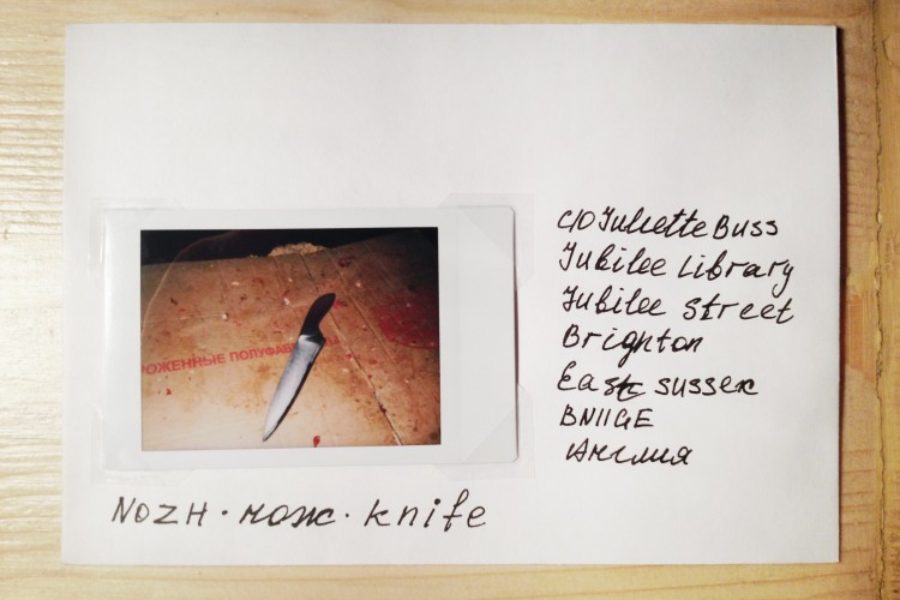 РОЖЕННЫЕ ПОЛУФАБ
c/o Juliette Buss
Jubilee Library
Jubilee Street
Brighton
East Sussex
BN11GE
Англия
NOZH · нож · knife